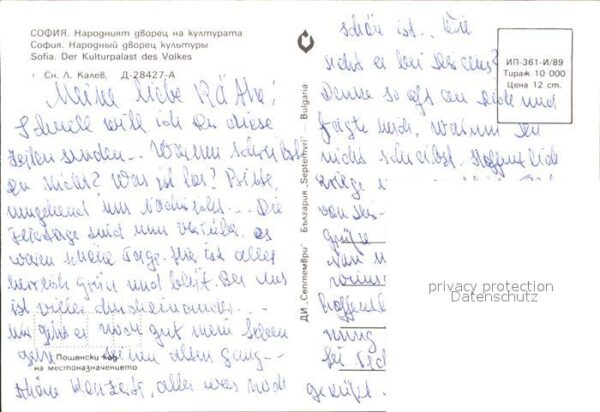 СОФИЯ. Народният дворец на културата
София. Народный дворец культуры
Sofia. Der Kulturpalast des Volkes
Сн. Л. Калев. Д-28427-А
Meine liebe Käthe!
Schnell will ich dir diese
Zeilen senden... Warum schreibst
du nicht? Was ist los? Bitte,
umgehend um Nachricht... Die
Feiertage sind um vorüber, es
waren schöne Tage. Hier ist alles
herrlich grün und blüht. Bei uns
ist vieles durcheinander...
Mir geht es noch gut mein Leben
geht seinen alten Gang--
schöne Konzerte, alles was noch
Пощенски код
на местоназначението
ДИ „Септември" България „Septemvri" Bulgaria
schön ist... Wie
sieht es bei des aus?
Denke so oft an dich und
frage mich, warum du
nicht schreibst. Hoffentlich
kriege
von
Grüße
hoffentl
geküßt
ИП-361-И/89
Тираж 10 000
Цена 12 ст.
privacy protection
Datenschutz